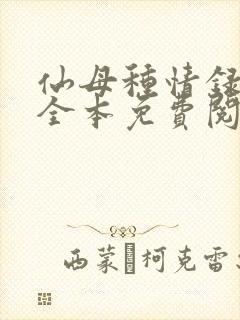 仙母種情録
全本免費閱
西蒙 柯克雷